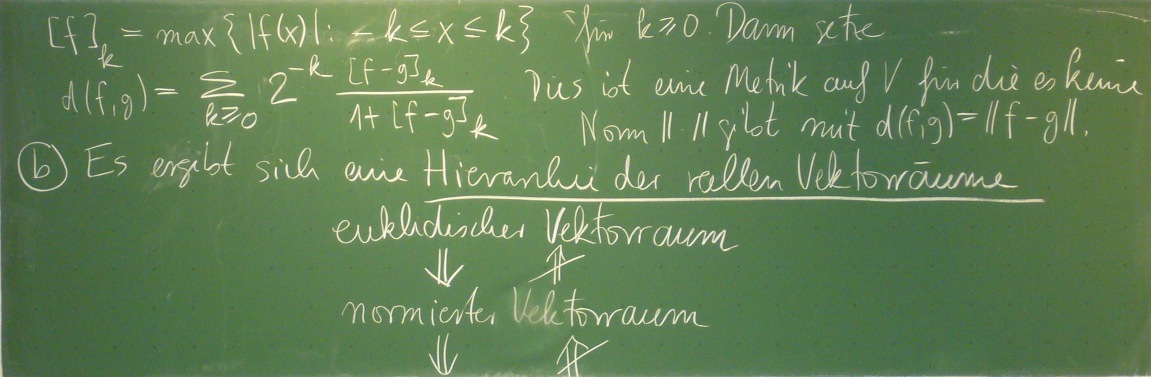 [f]_k = max{|f(x)|: -k ≤ x ≤ k} für k ≥ 0. Dann setze
d(f,g) = Σ_{k≥0} 2^{-k} [f-g]_k / (1+[f-g]_k) Dies ist eine Metrik auf V für die es keine
Norm ||·|| gibt mit d(f,g) = ||f-g||.
(b) Es ergibt sich eine Hierarchie der reellen Vektorräume
euklidischer Vektorraum
⇓ ⇑̸
normierter Vektorraum
⇓ ⇑̸